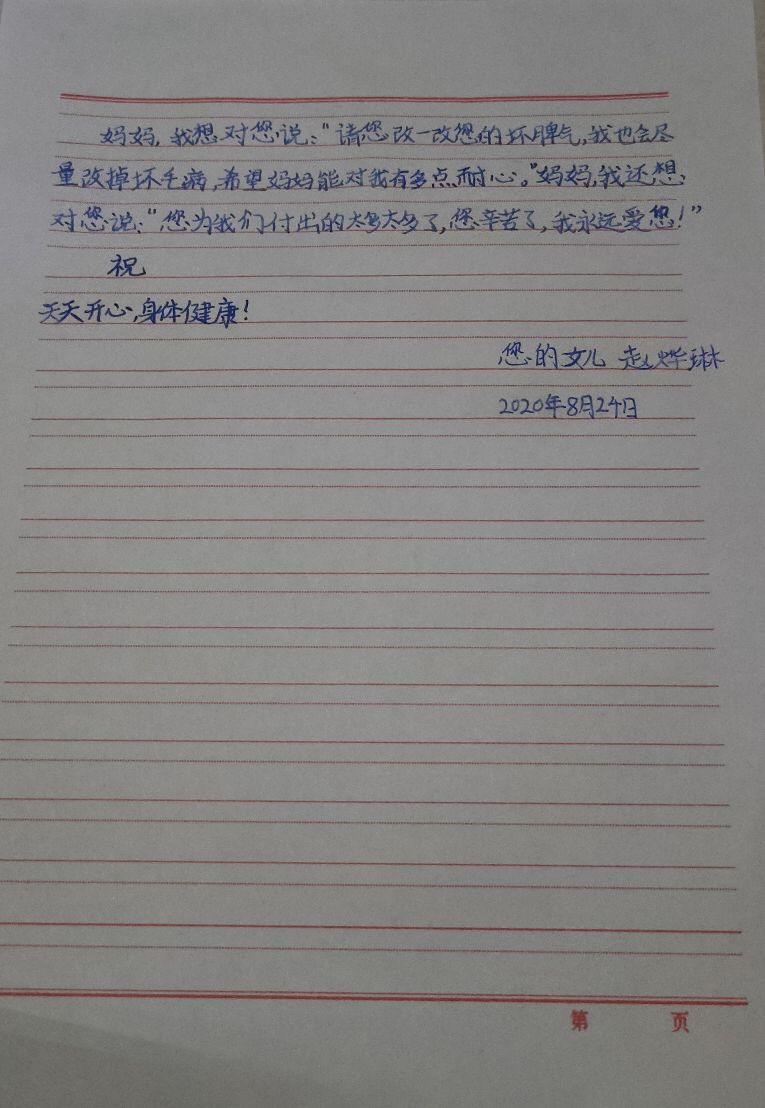 妈妈,我想对您说:“请您改一改您的坏脾气,我也会尽
量改掉坏毛病,希望妈妈能对我有多点耐心。”妈妈,我还想
对您说:“您为我们付出的太多太多了,您辛苦了,我永远爱您!”
祝
天天开心,身体健康!
您的女儿 赵烨琳
2020年8月24日
第 页